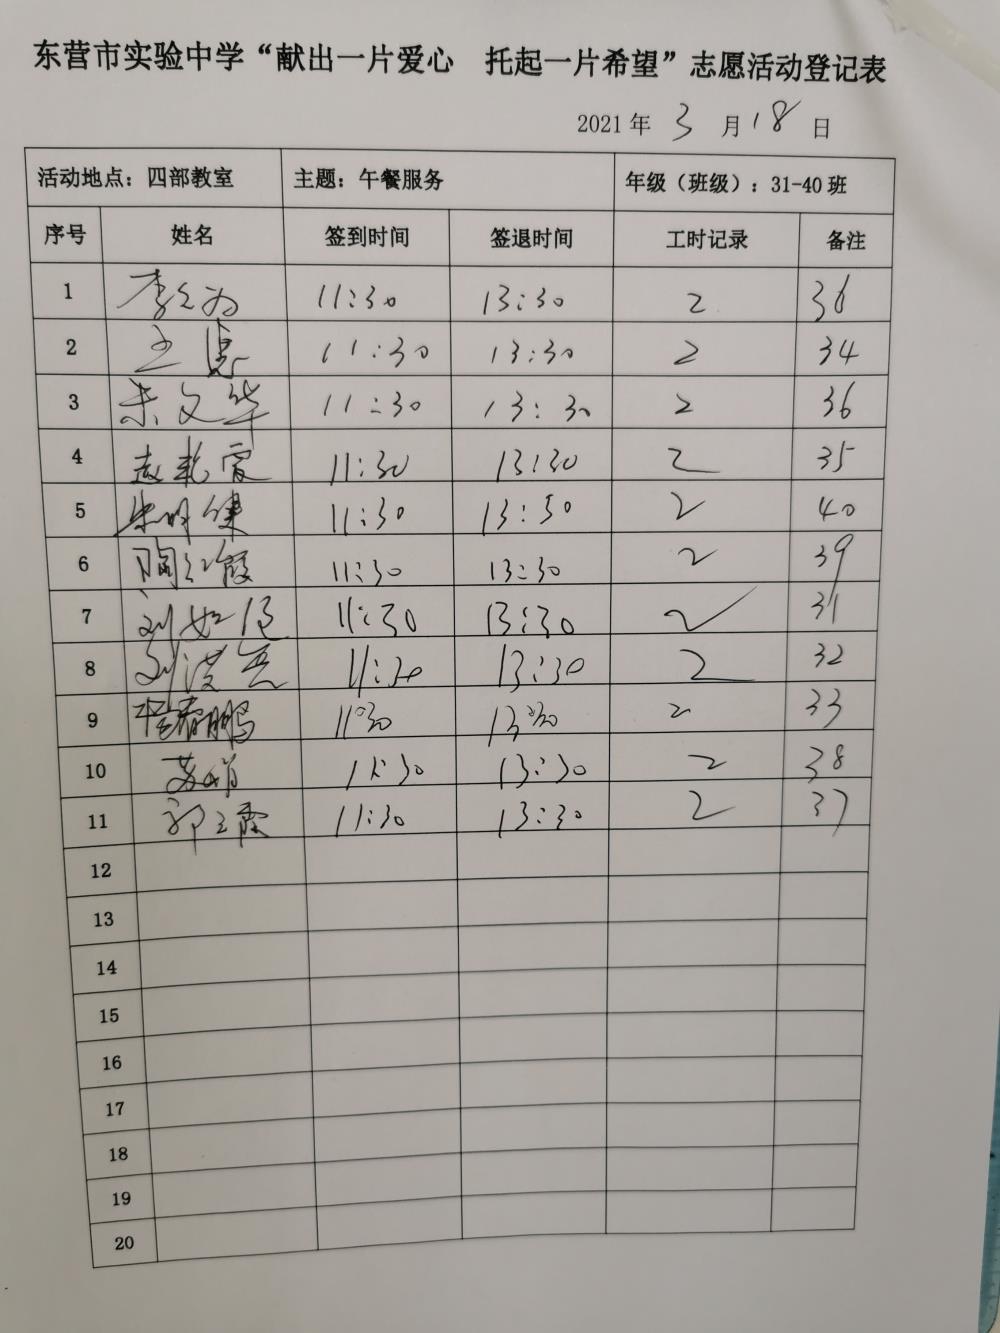 东营市实验中学“献出一片爱心 托起一片希望”志愿活动登记表
2021年 3 月 18 日
活动地点：四部教室 主题：午餐服务 年级（班级）：31-40班
序号 姓名 签到时间 签退时间 工时记录 备注
1 11:30 13:30 2 36
2 11:30 13:30 2 34
3 朱文华 11:30 13:30 2 36
4 11:30 13:30 2 35
5 朱明健 11:30 13:30 2 40
6 11:30 13:30 2 39
7 刘如 11:30 13:30 2 31
8 刘洪 11:30 13:30 2 32
9 11:30 13:30 2 33
10 苏娟 11:30 13:30 2 38
11 郭玉霞 11:30 13:30 2 37
12
13
14
15
16
17
18
19
20